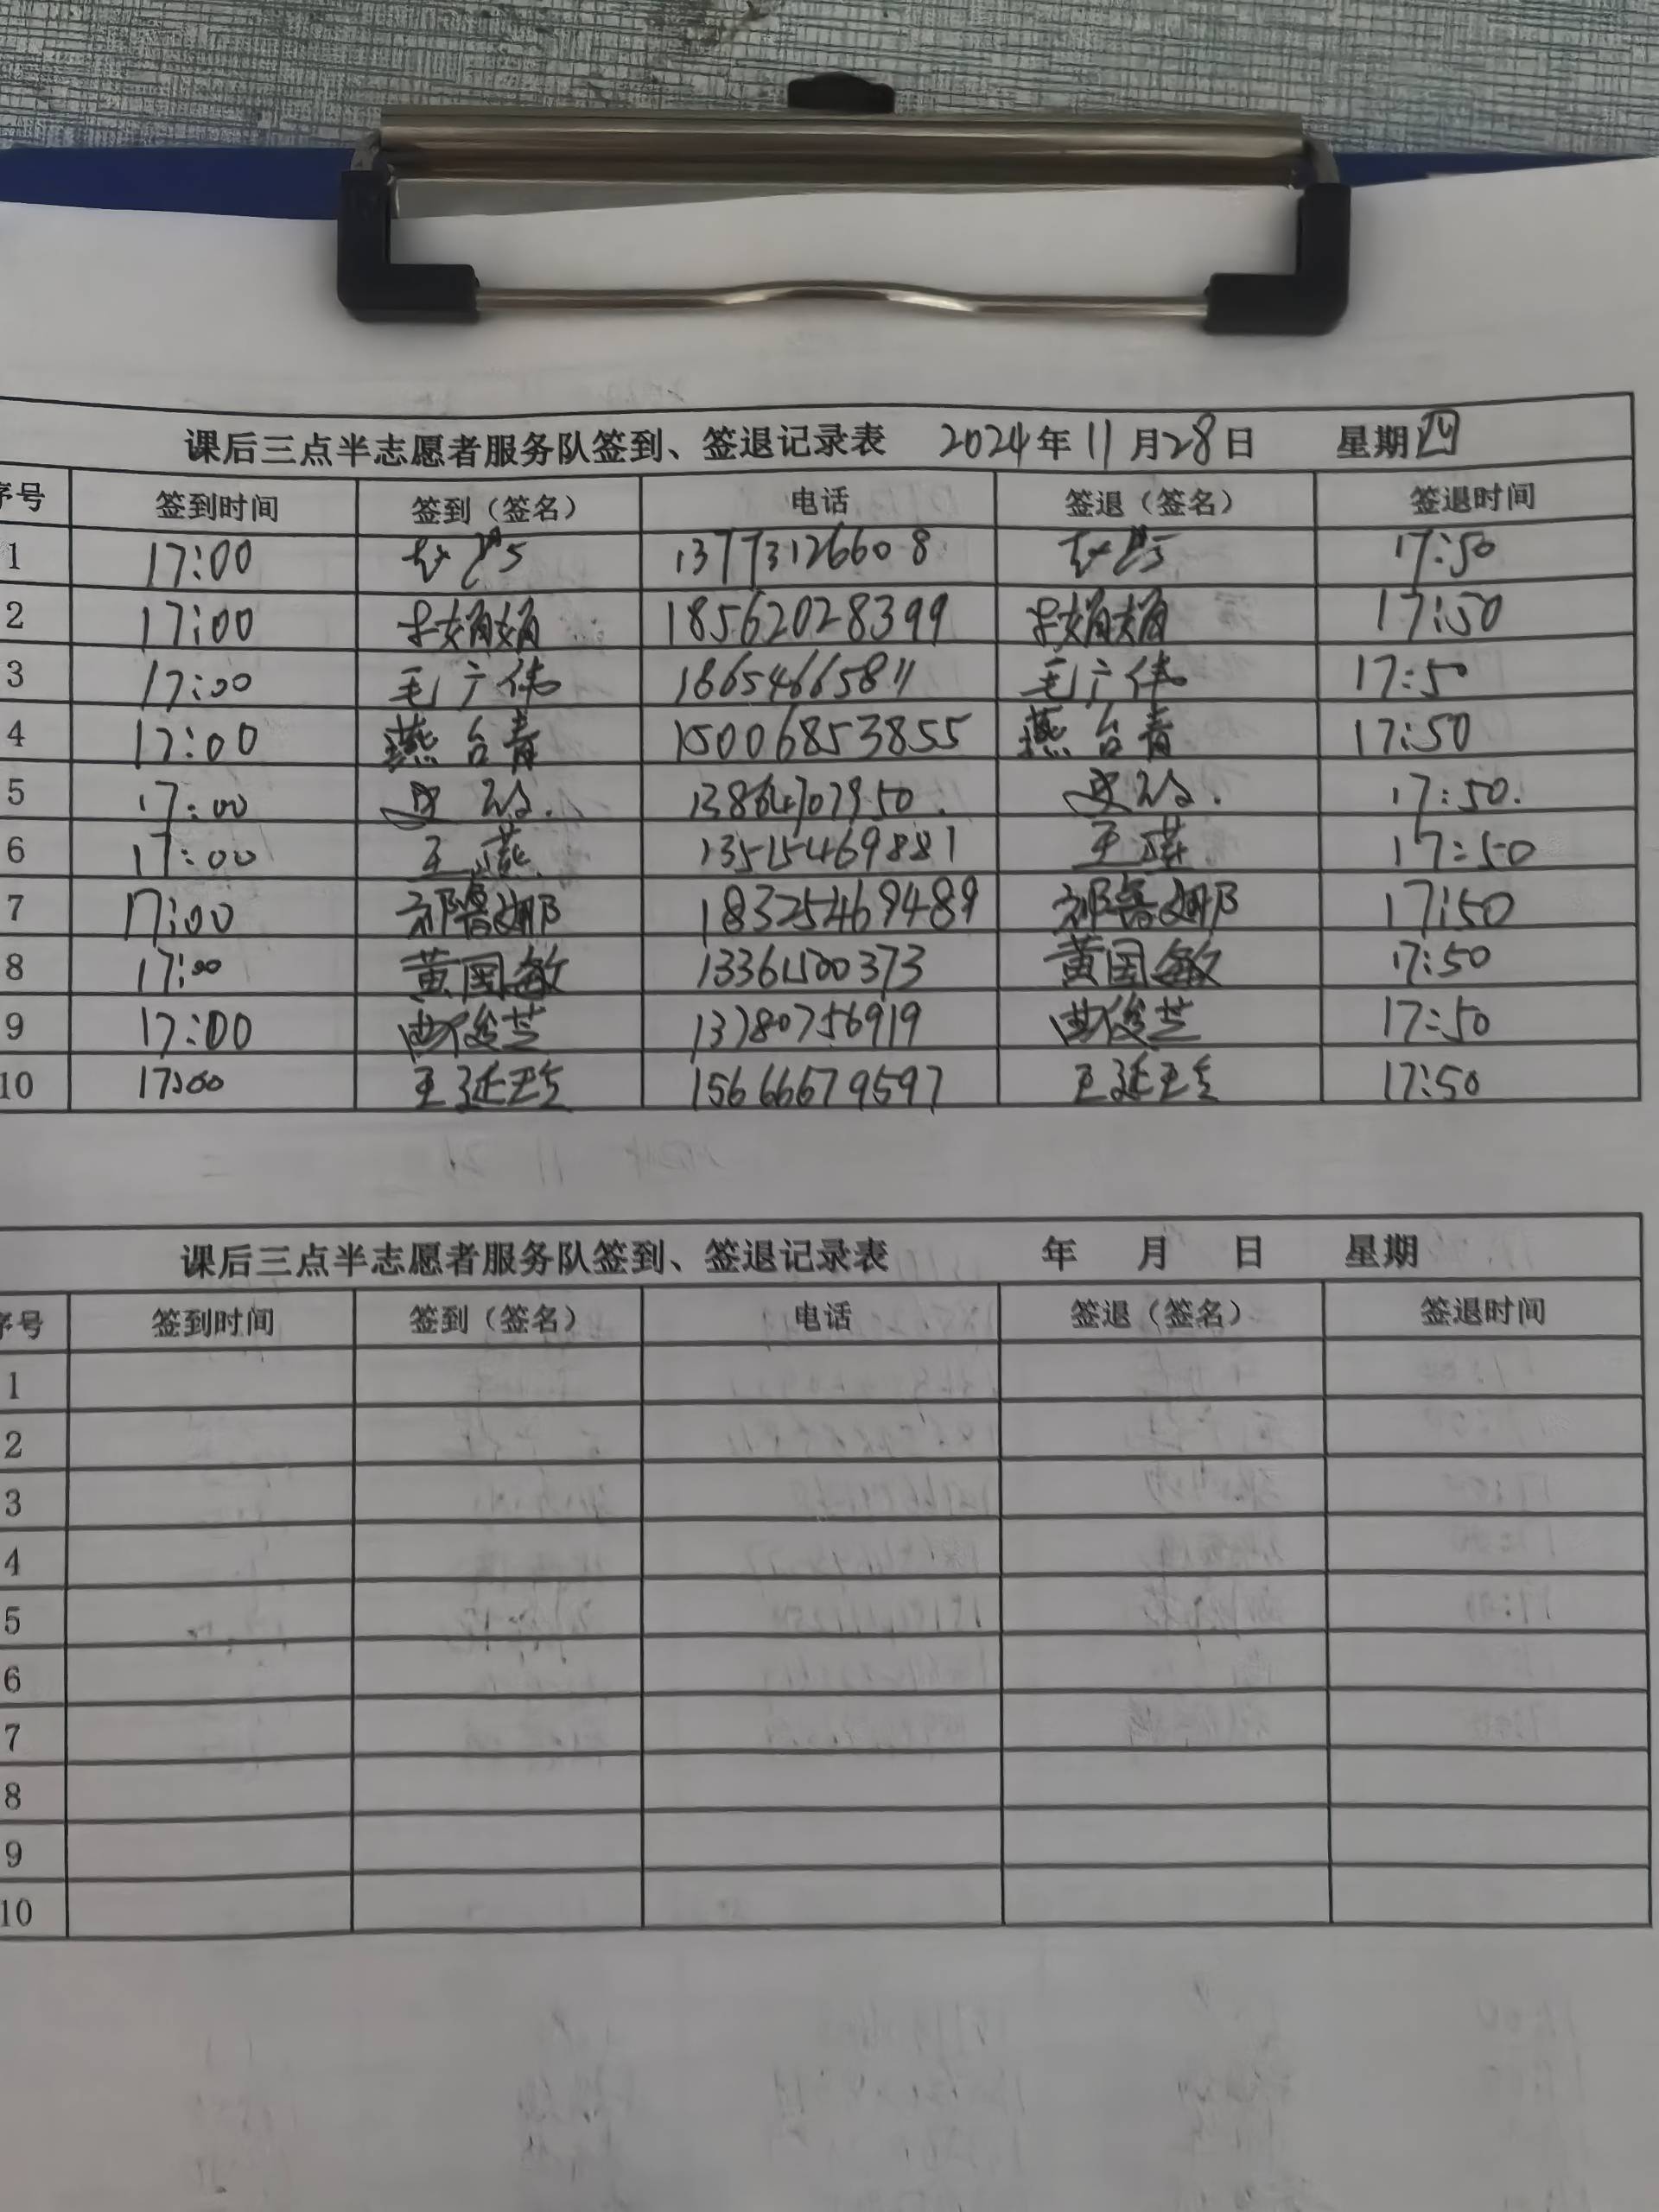 课后三点半志愿者服务队签到、签退记录表 2024年11月28日 星期四
序号 签到时间 签到（签名） 电话 签退（签名） 签退时间
1 17:00 13773126608 17:50
2 17:00 18562028399 17:50
3 17:00 毛广伟 18654665811 毛广伟 17:50
4 17:00 燕台青 15006853855 燕台青 17:50
5 17:00 13864707950. 17:50.
6 17:00 王燕 13515469881 王燕 17:50
7 17:00 祁鲁娜 18325469489 祁鲁娜 17:50
8 17:00 黄国敏 13361500373 黄国敏 17:50
9 17:00 曲俊芝 13780756919 曲俊芝 17:50
10 17:00 15666679597 17:50
课后三点半志愿者服务队签到、签退记录表 年 月 日 星期
序号 签到时间 签到（签名） 电话 签退（签名） 签退时间
1
2
3
4
5
6
7
8
9
10